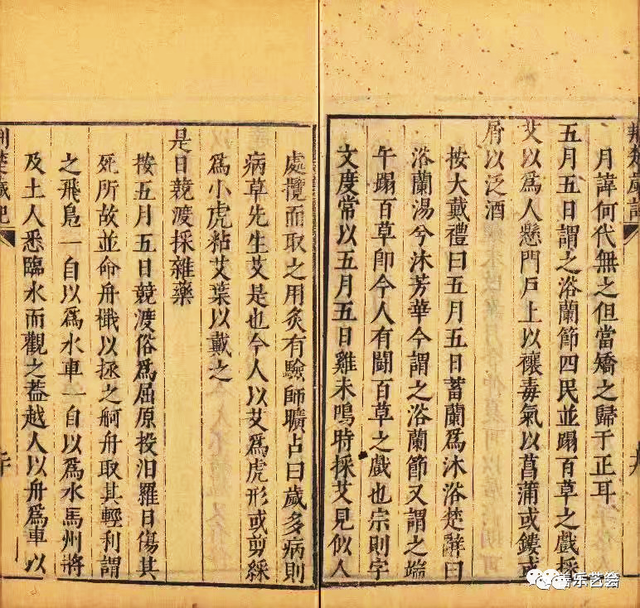 荊楚歲記
月諱何代無之但當矯之歸于正耳
五月五日謂之浴蘭節四民並蹋百草之戲採
艾以爲人懸門戶上以禳毒氣以菖蒲或鏤或
屑以泛酒
按大戴禮曰五月五日蓄蘭爲沐浴楚辭曰
浴蘭湯兮沐芳華今謂之浴蘭節又謂之端
午蹋百草卽今人有鬪百草之戲也宗則字
文度常以五月五日雞未鳴時採艾見似人
處攬而取之用灸有驗師曠占曰歲多病則
病草先生艾是也今人以艾爲虎形或剪綵
爲小虎粘艾葉以戴之
是日競渡採雜藥
按五月五日競渡俗爲屈原投汨羅日傷其
死所故並命舟檝以拯之舸舟取其輕利謂
之飛鳧一自以爲水車一自以爲水馬州將
及土人悉臨水而觀之葢越人以舟爲車以
荊楚歲記